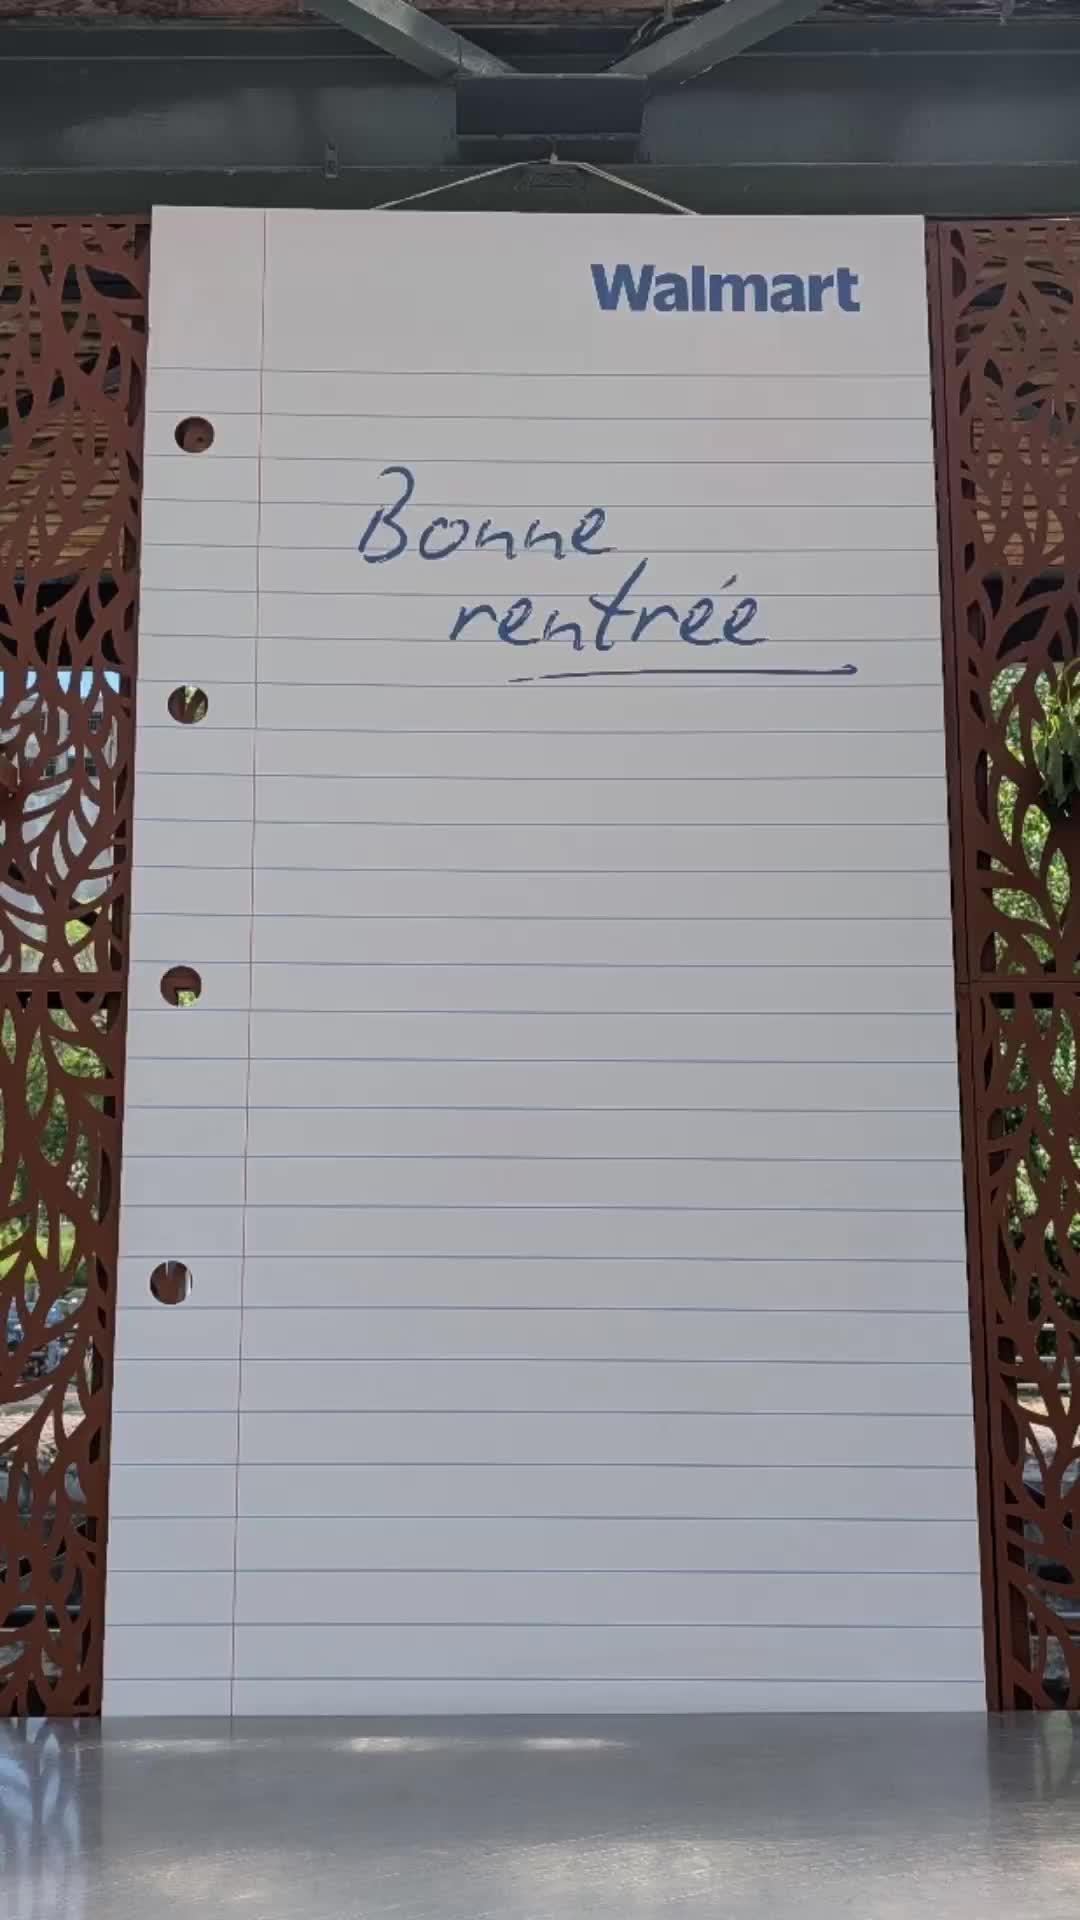 Walmart
Bonne
rentrée